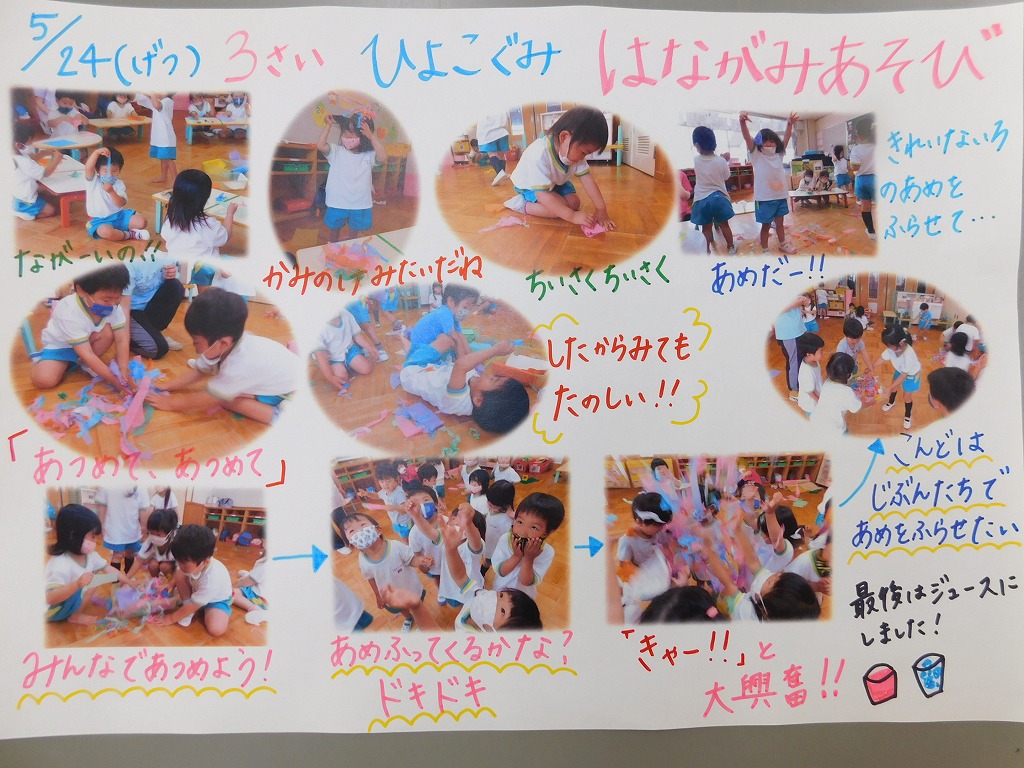 5/24(げつ) 3さい ひよこぐみ はながみあそび
ながーいの!!
かみのけみたいだね
ちいさくちいさく
あめだー!!
きれいないろ
のあめを
ふらせて…
「あつめて、あつめて」
したからみても
たのしい!!
みんなであつめよう!
あめふってくるかな?
ドキドキ
「きゃー!!」と
大興奮!!
こんどは
じぶんたちで
あめをふらせたい
最後はジュースに
しました!